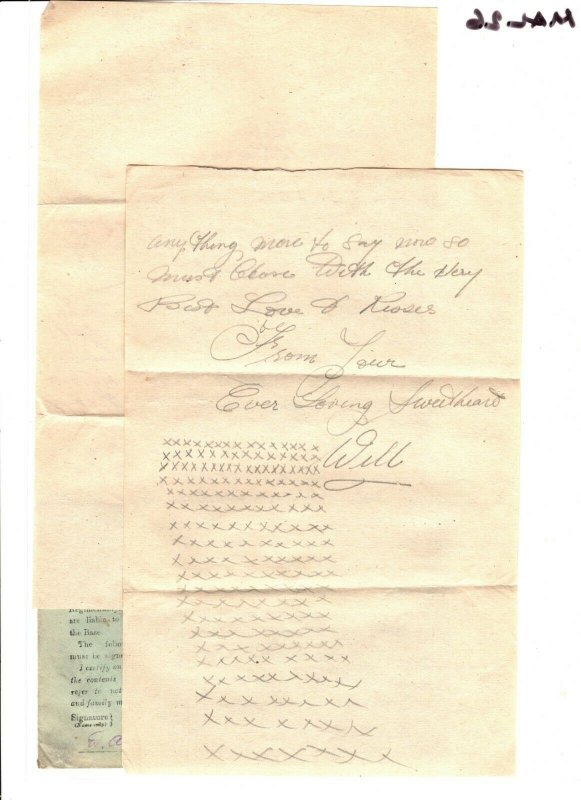 any thing more to say now so
must Close With the Very
Best Love & Kisses
From Your
Ever Loving Sweetheart
Will
x x x x x x x x x x x x x
x x x x x x x x x x x x x
x x x x x x x x x x x x x
x x x x x x x x x x x x x
x x x x x x x x x x x x
x x x x x x x x x x x x
x x x x x x x x x x x
x x x x x x x x x x x
x x x x x x x x x x
x x x x x x x x x x
x x x x x x x x x x
x x x x x x x x x x
x x x x x x x x x x
x x x x x x x x x
x x x x x x x x x
x x x x x x x x x
x x x x x x x x
x x x x x x x
x x x x x x x
x x x x x x x
are liable to
the Base
The
must be
I certify
the contents
refer to
and family
Signature